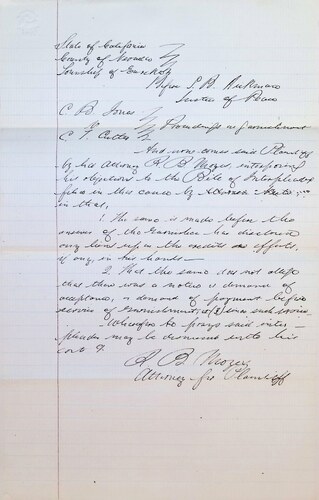 State of California
County of
Township of Eureka
Before S. B.
Justice of Peace
C B Jones
vs
C F Cutter
And now comes said Plaintiff
by his Attorney R. B. Moyes, interposing
his objections to the Bill of Interpleader
filed in this cause by
in that,
1. The same is made before the
answer of the Garnishee has disclosed
any lien upon the credits or effects,
if any, in his hands—
2. That the same does not allege
that there was a notice & demand of
acceptance, or demand of payment before
service of Garnishment, or since such service—
Wherefore he prays said inter-
pleader may be dismissed with his
cost &
R B Moyes,
Attorney for Plaintiff